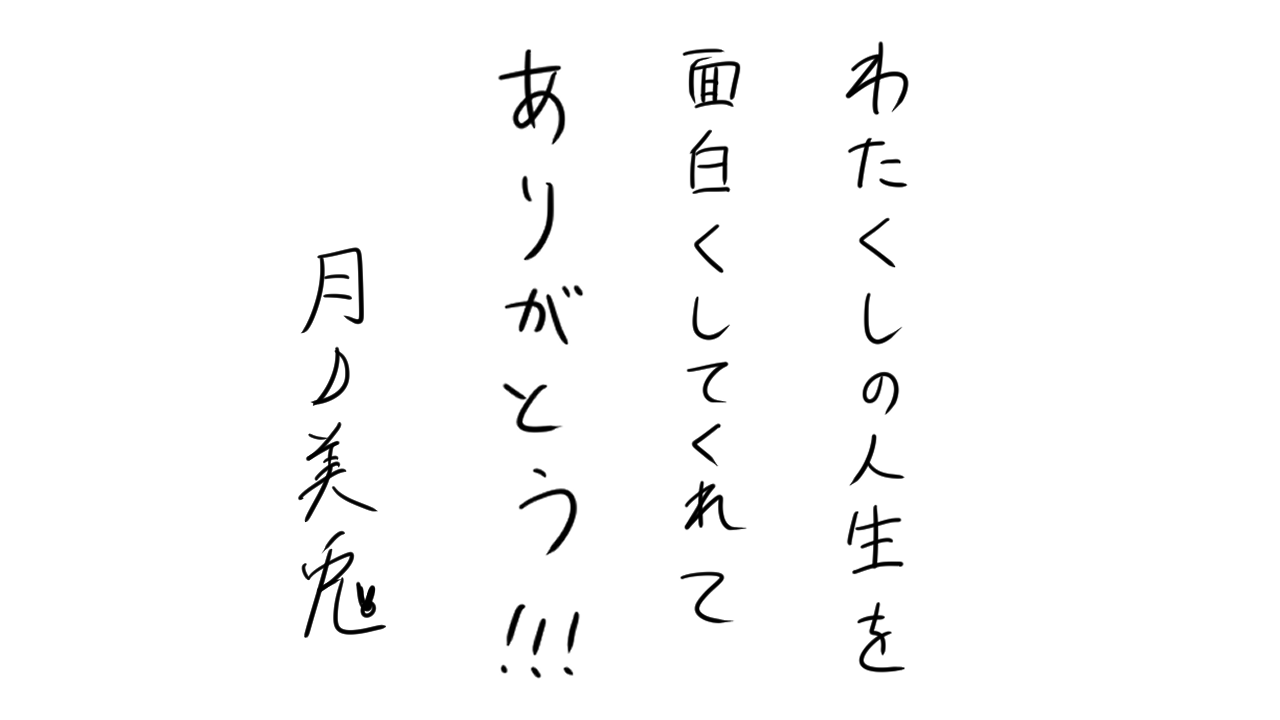 わたくしの人生を
面白くしてくれて
ありがとう!!!
月ノ美兎